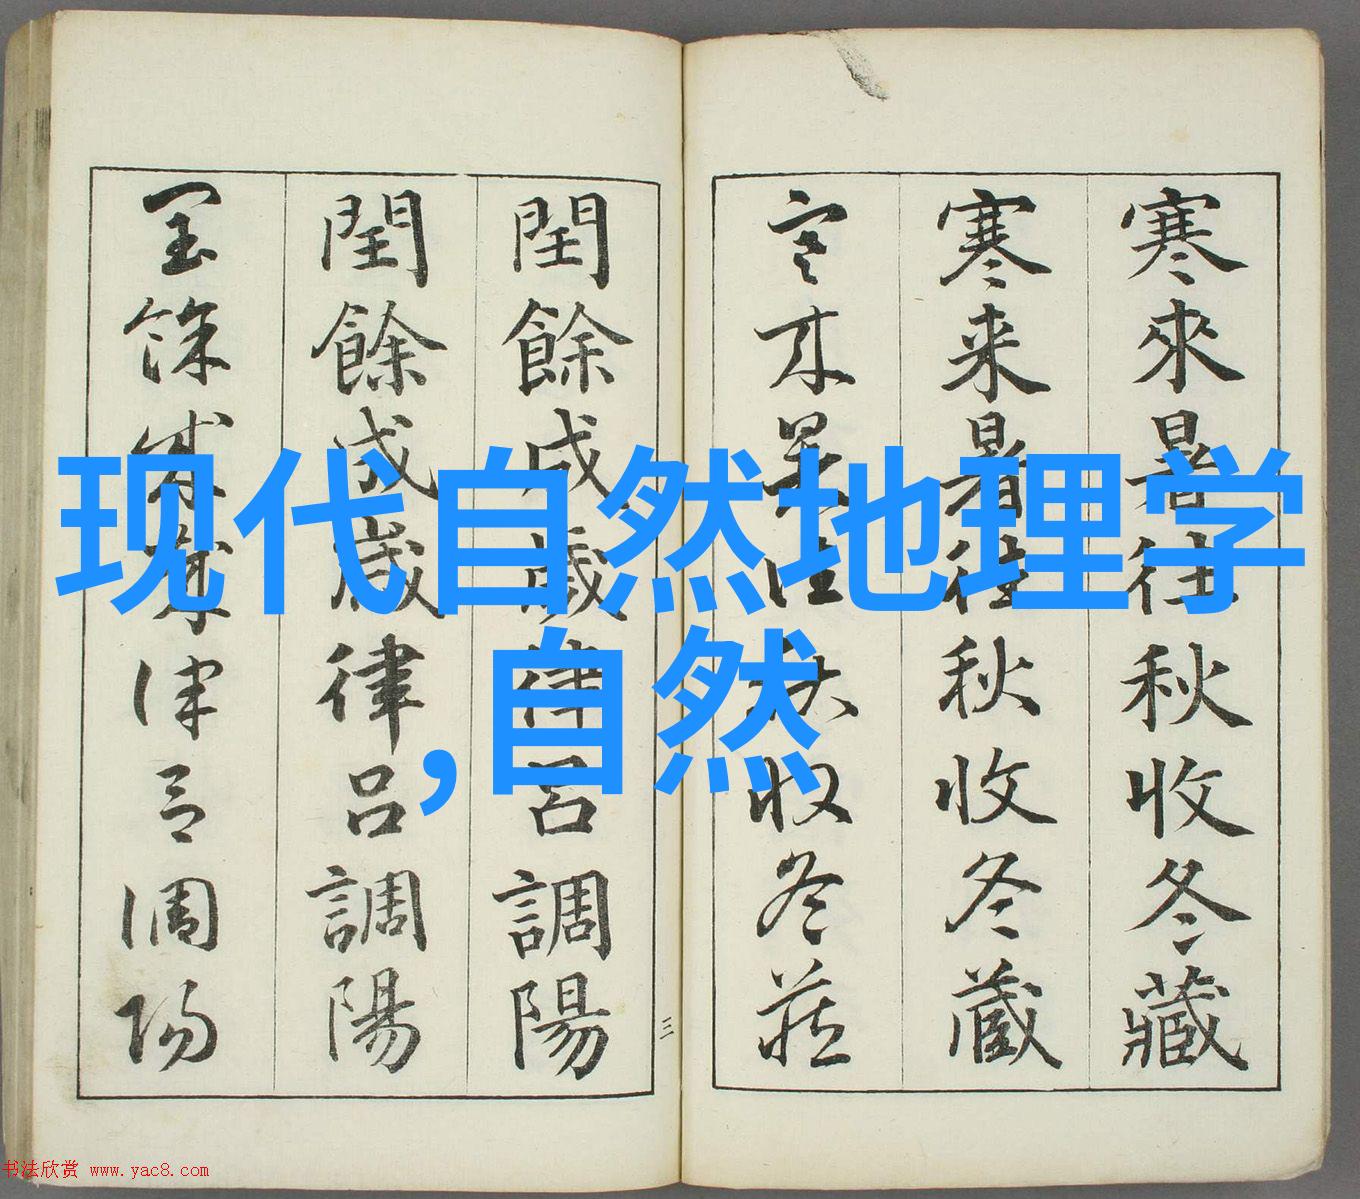 现代自然地理学
,自然
寒來暑往秋收冬藏
寒来暑往秋收冬蔵
寒来暑往秋收冬蔵
三
閏餘成歲律呂調陽
閏餘成歳律呂調陽
閏餘成歲律呂調陽
书法欣赏 www.yac8.com